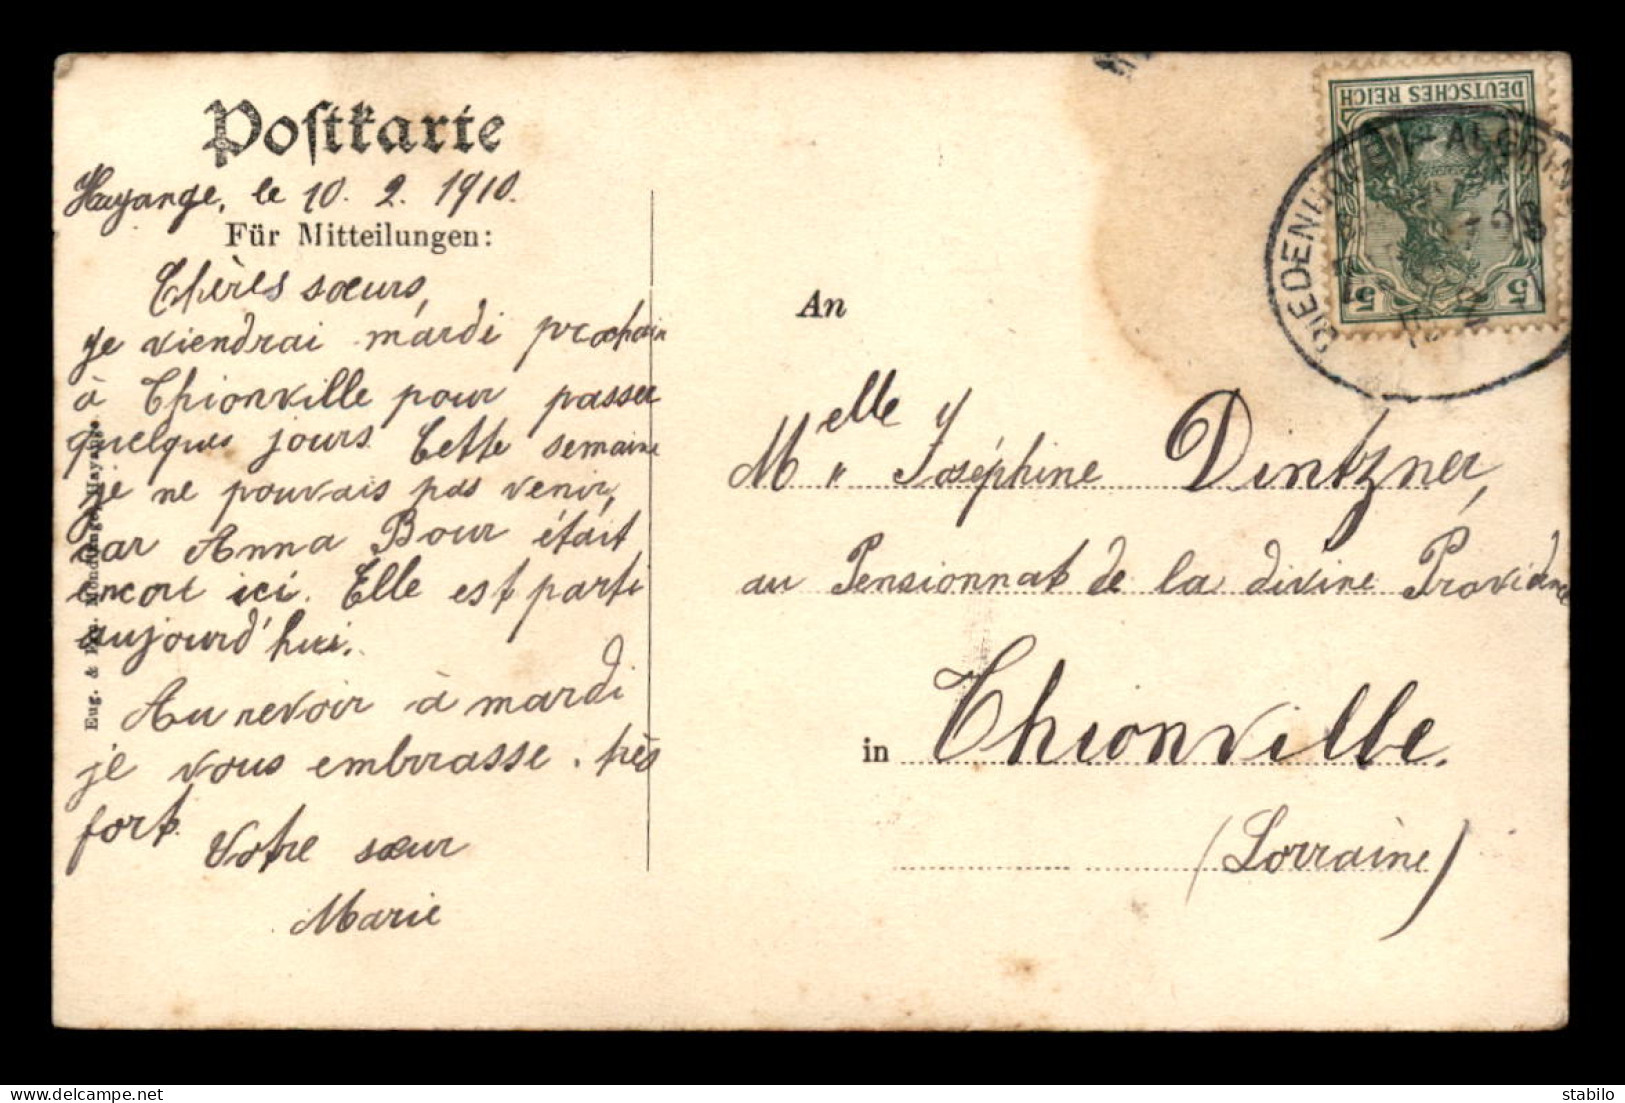 Postkarte
Hayange, le 10. 2. 1910.
Für Mitteilungen:
Chères sœurs,
je viendrai mardi prochain
à Thionville pour passer
quelques jours. Cette semaine
je ne pouvais pas venir,
car Anna Bour était
encore ici. Elle est parti
aujourd'hui.
Au revoir à mardi
je vous embrasse. très
fort.
Votre sœur
Marie
Eug. & Hayange
DEUTSCHES REICH
5 5
DIEDENHOFEN ALGRIN
An
Melle
M " Joséphine Dintzner,
au Pensionnat de la divine Providence
in Thionville.
(Lorraine)
stabilo
www.delcampe.net